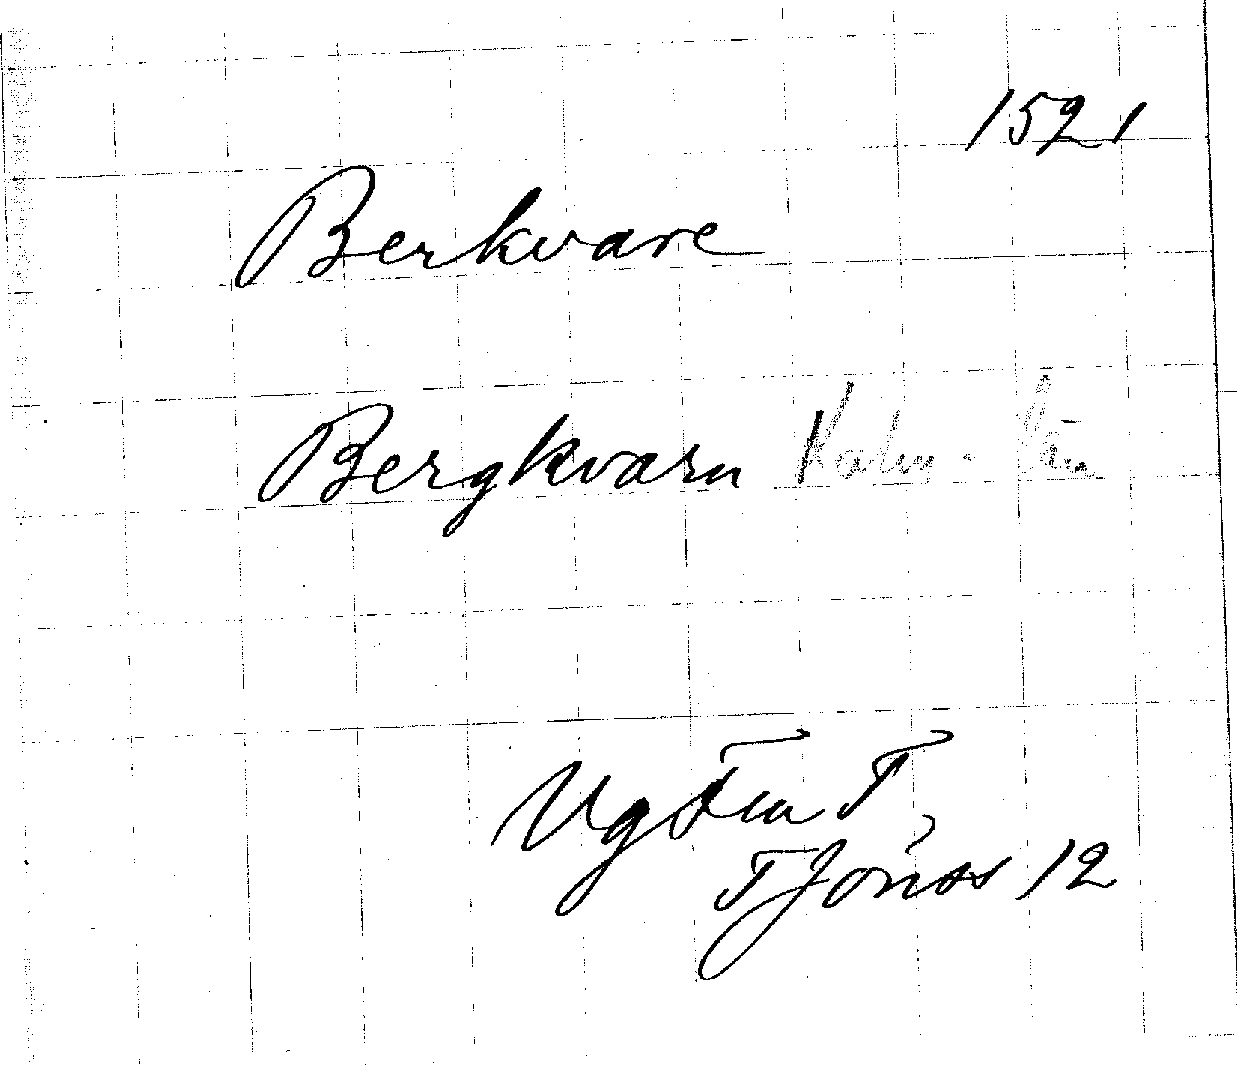 1521
Berkvare
Bergkvarn Kalm. län
Ug Fm T
T Jönss 12